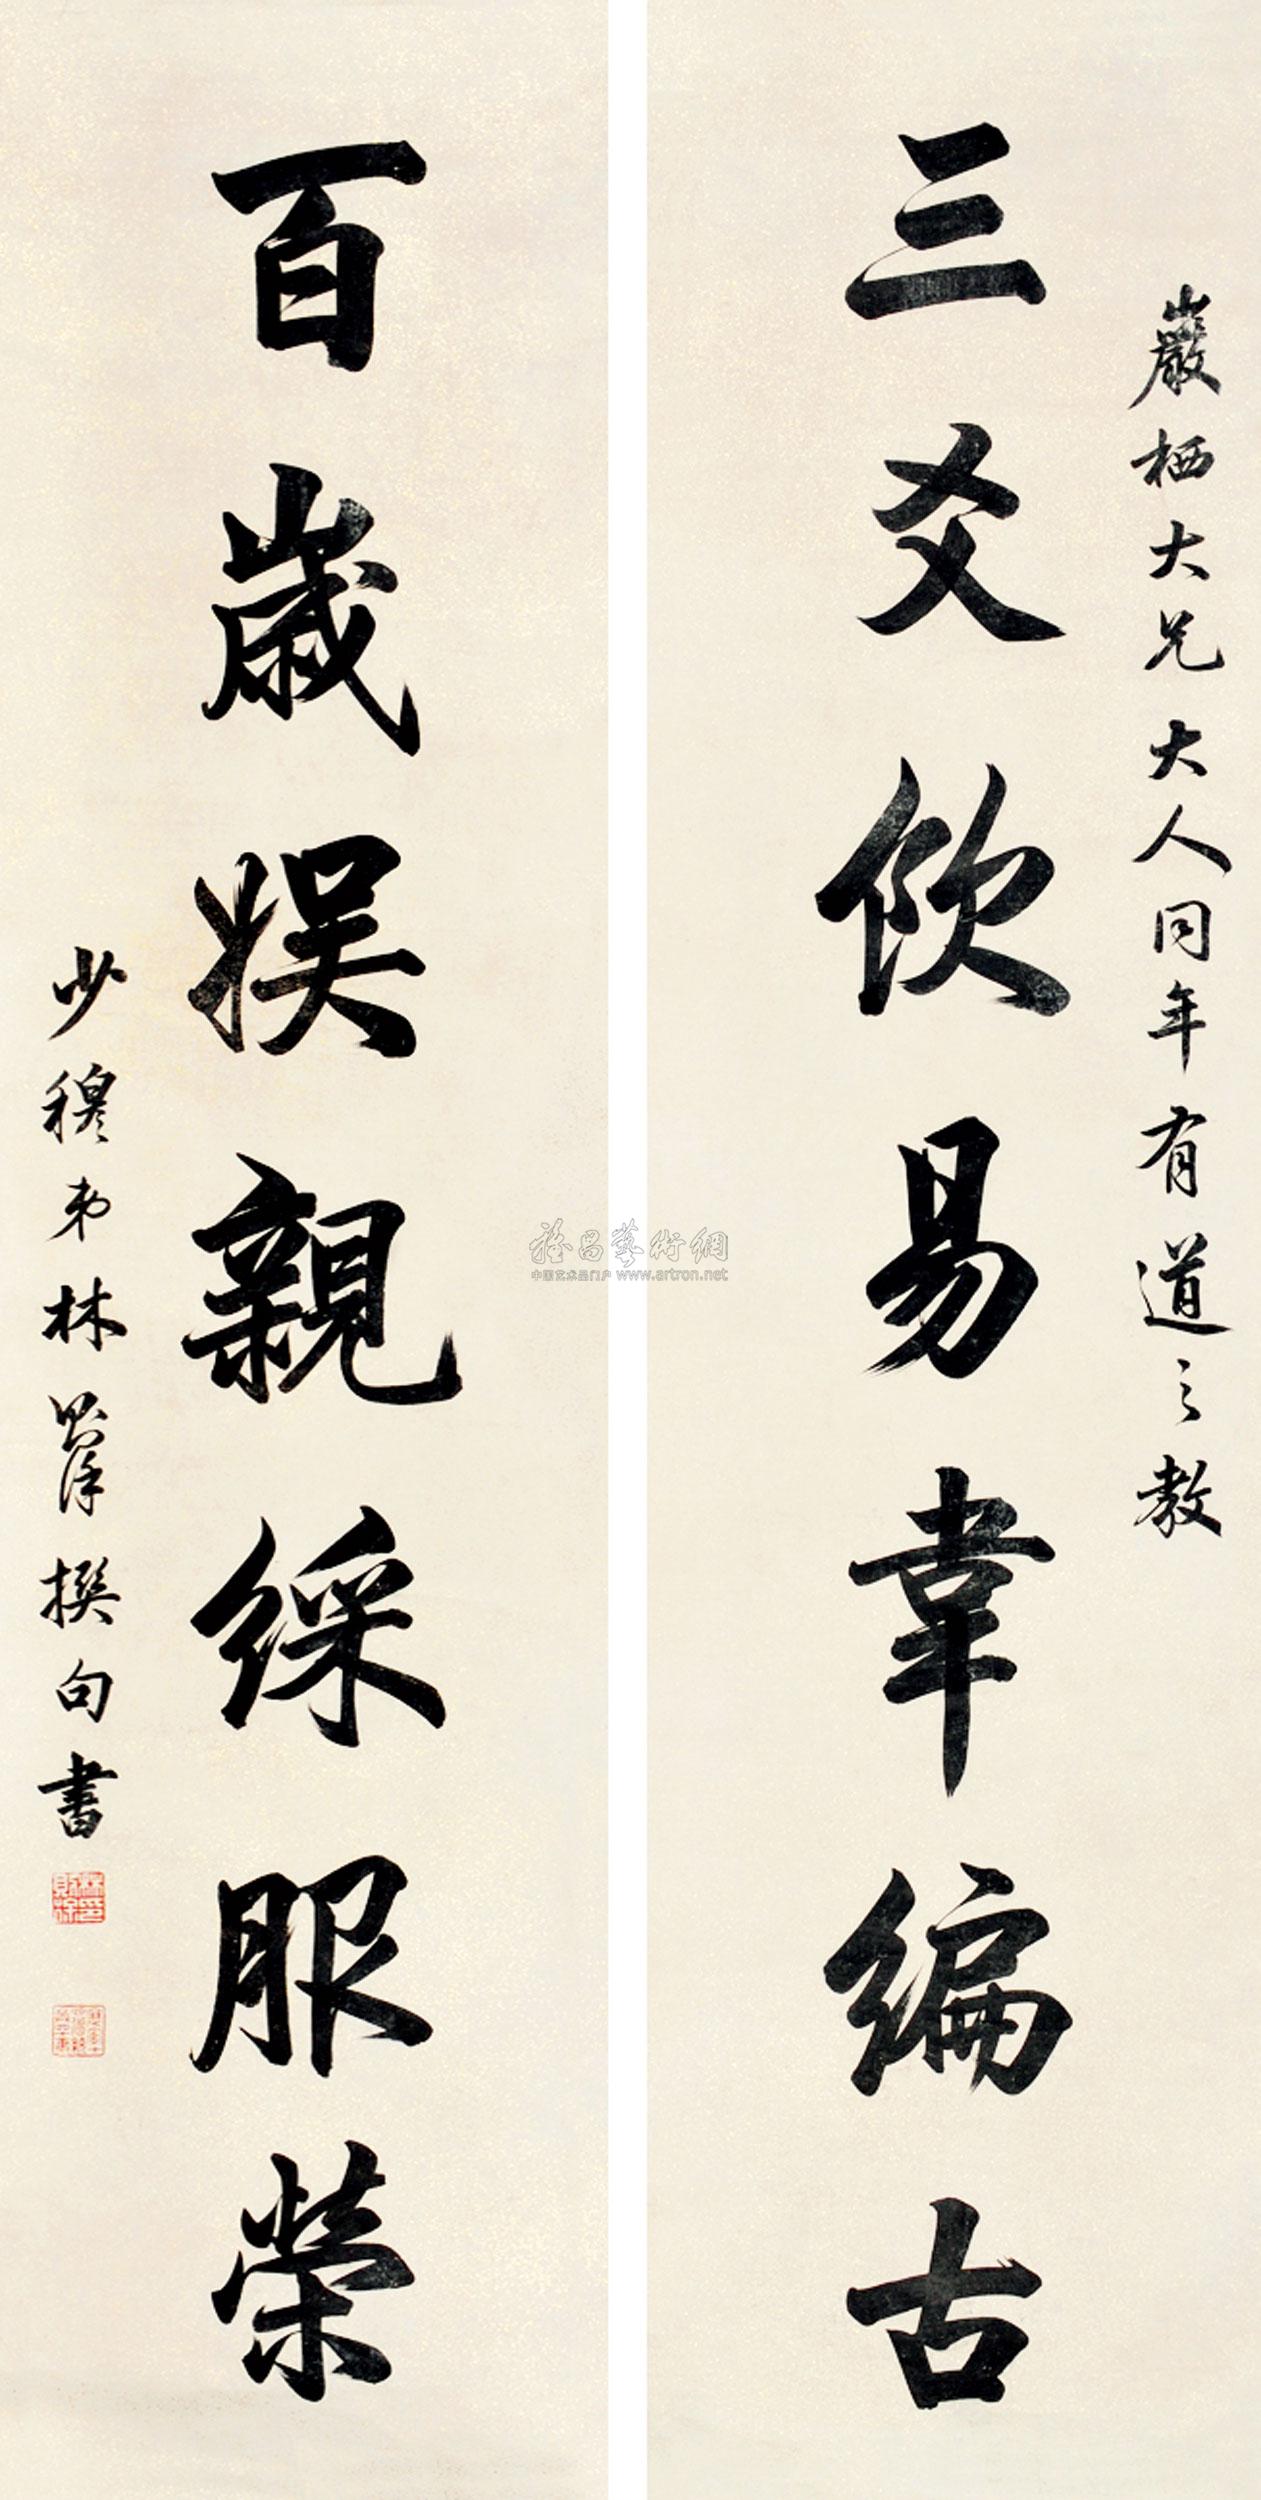 巖栖大兄大人同年有道之教
三爻飲易韋編古
百歲娱親綵服榮
少穆弟林則徐撰句書
雅昌藝術網
中国艺术品门户 www.artron.net